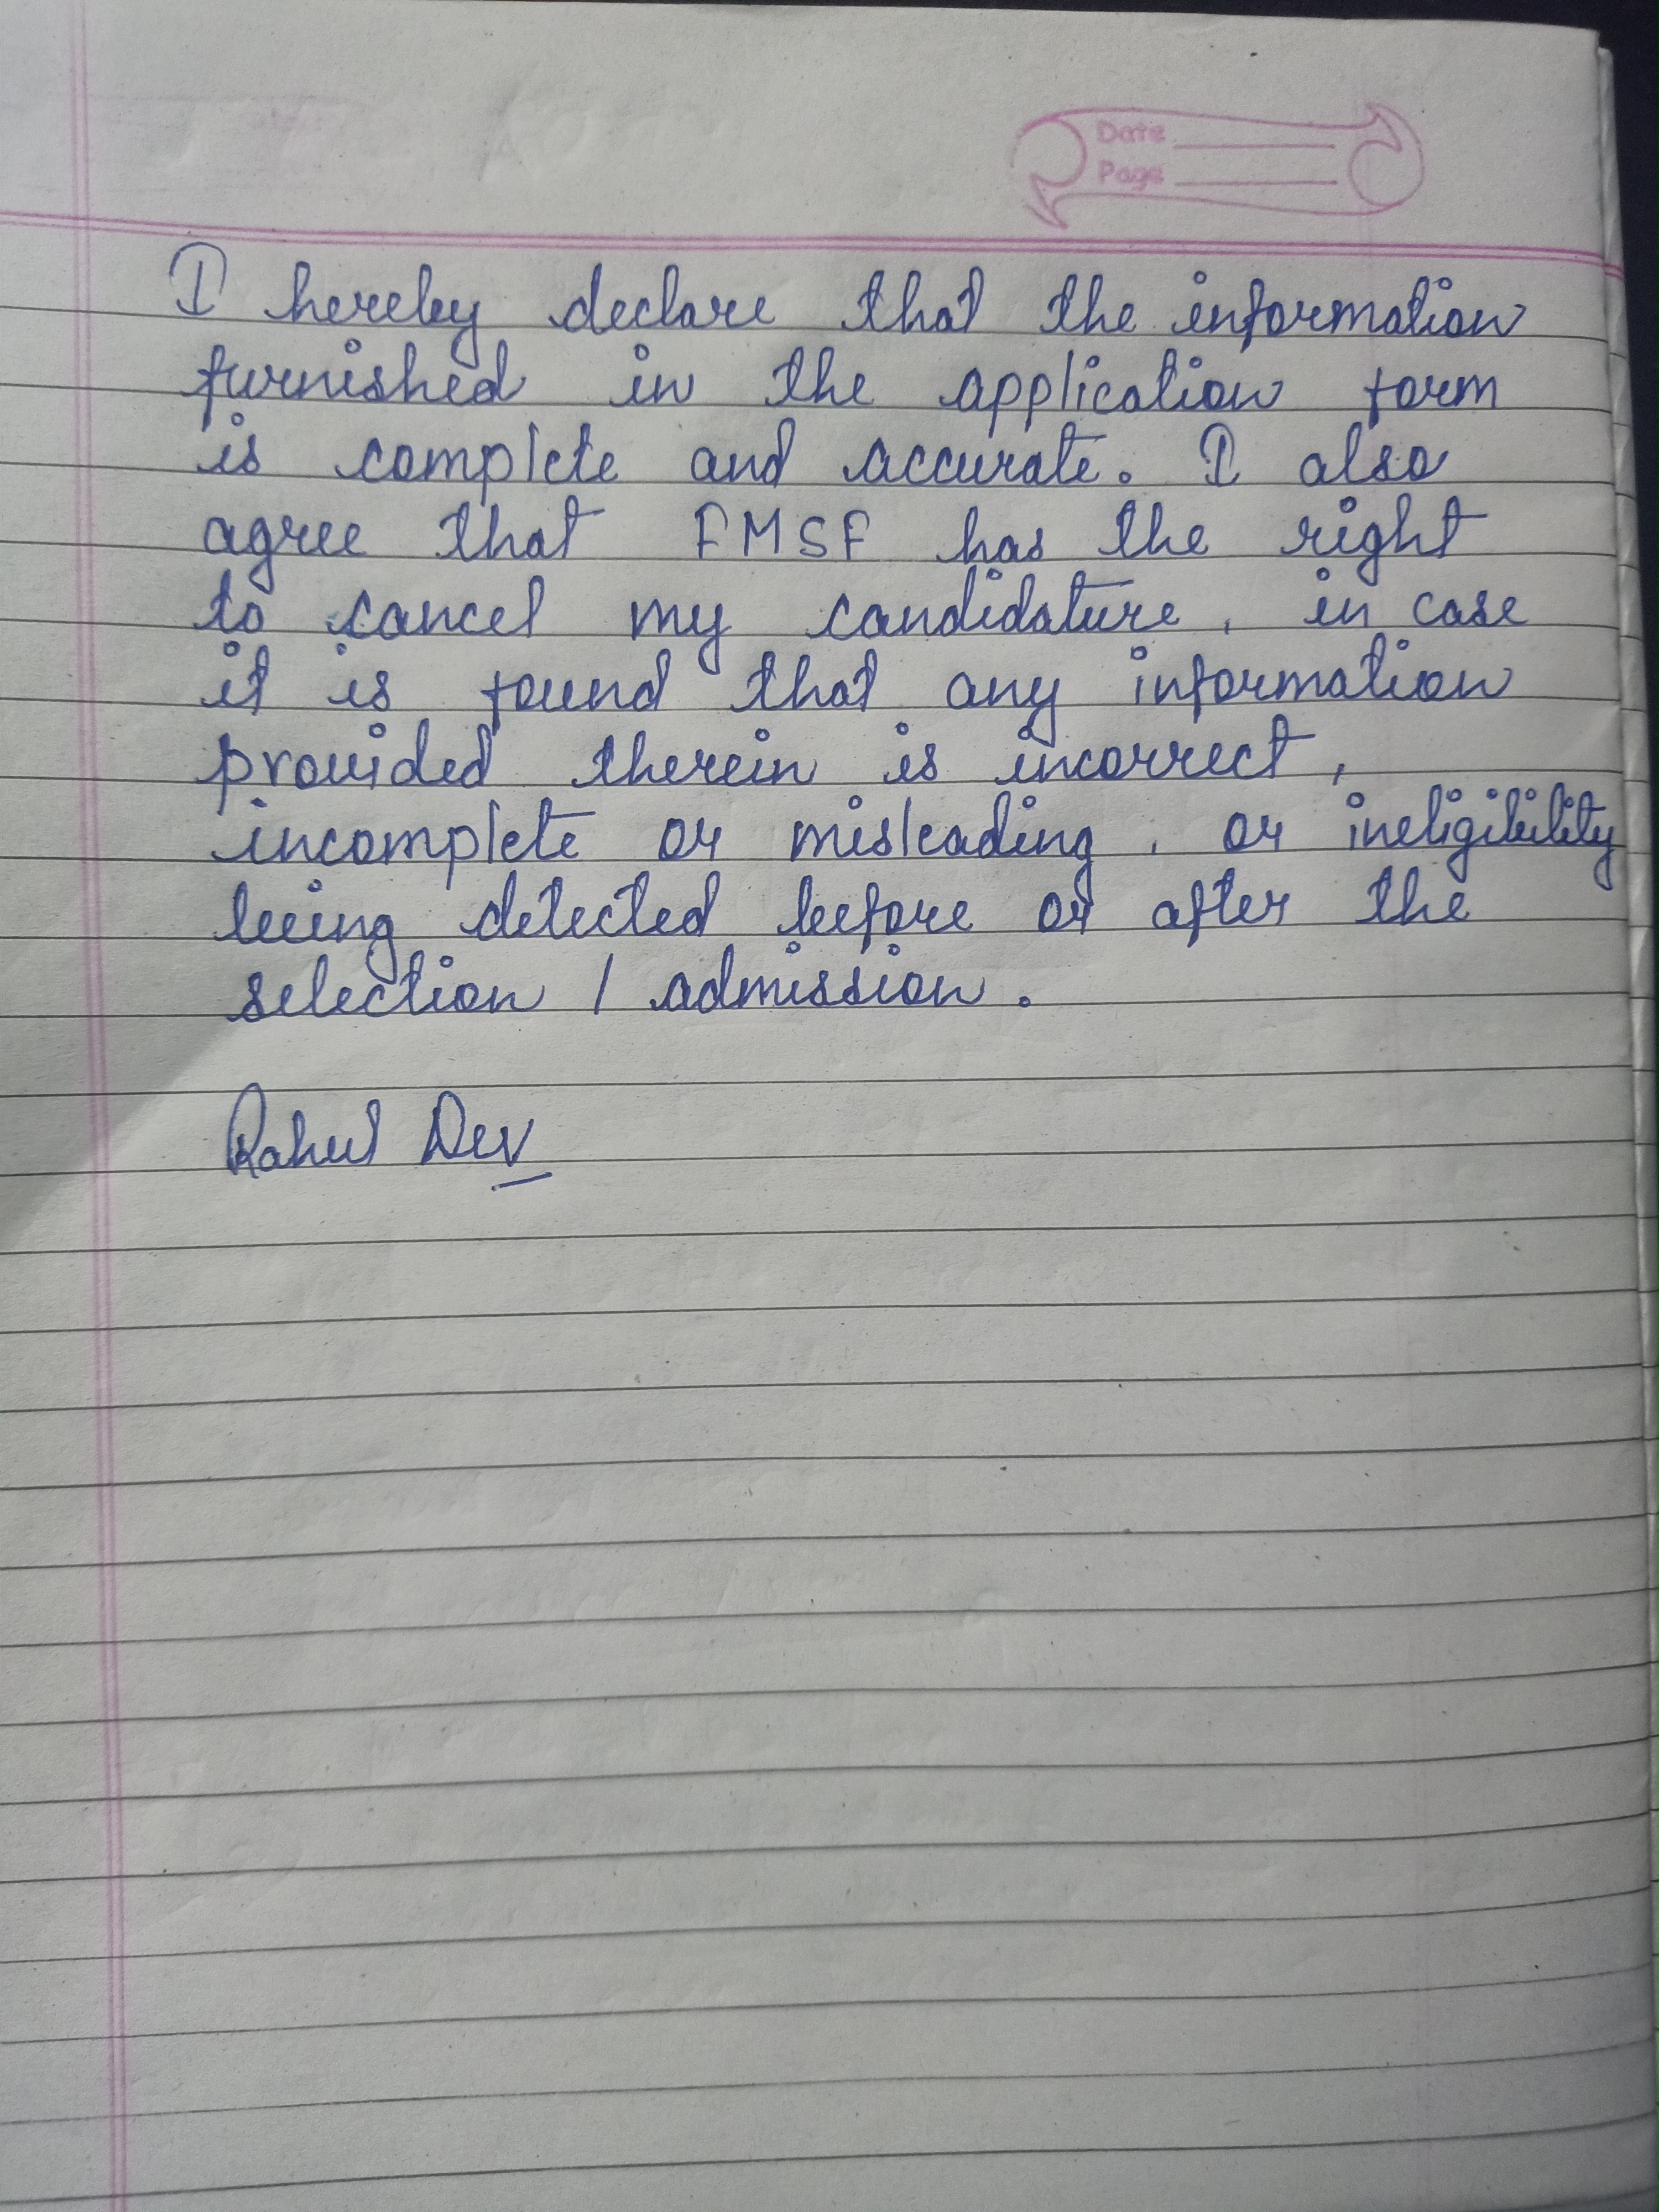 Date
Page
I hereby declare that the information
furnished in the application form
is complete and accurate. I also
agree that FMSF has the right
to cancel my candidature, in case
it is found that any information
provided therein is incorrect,
incomplete or misleading, or ineligibility
being detected before or after the
selection / admission.
Rahul Dev